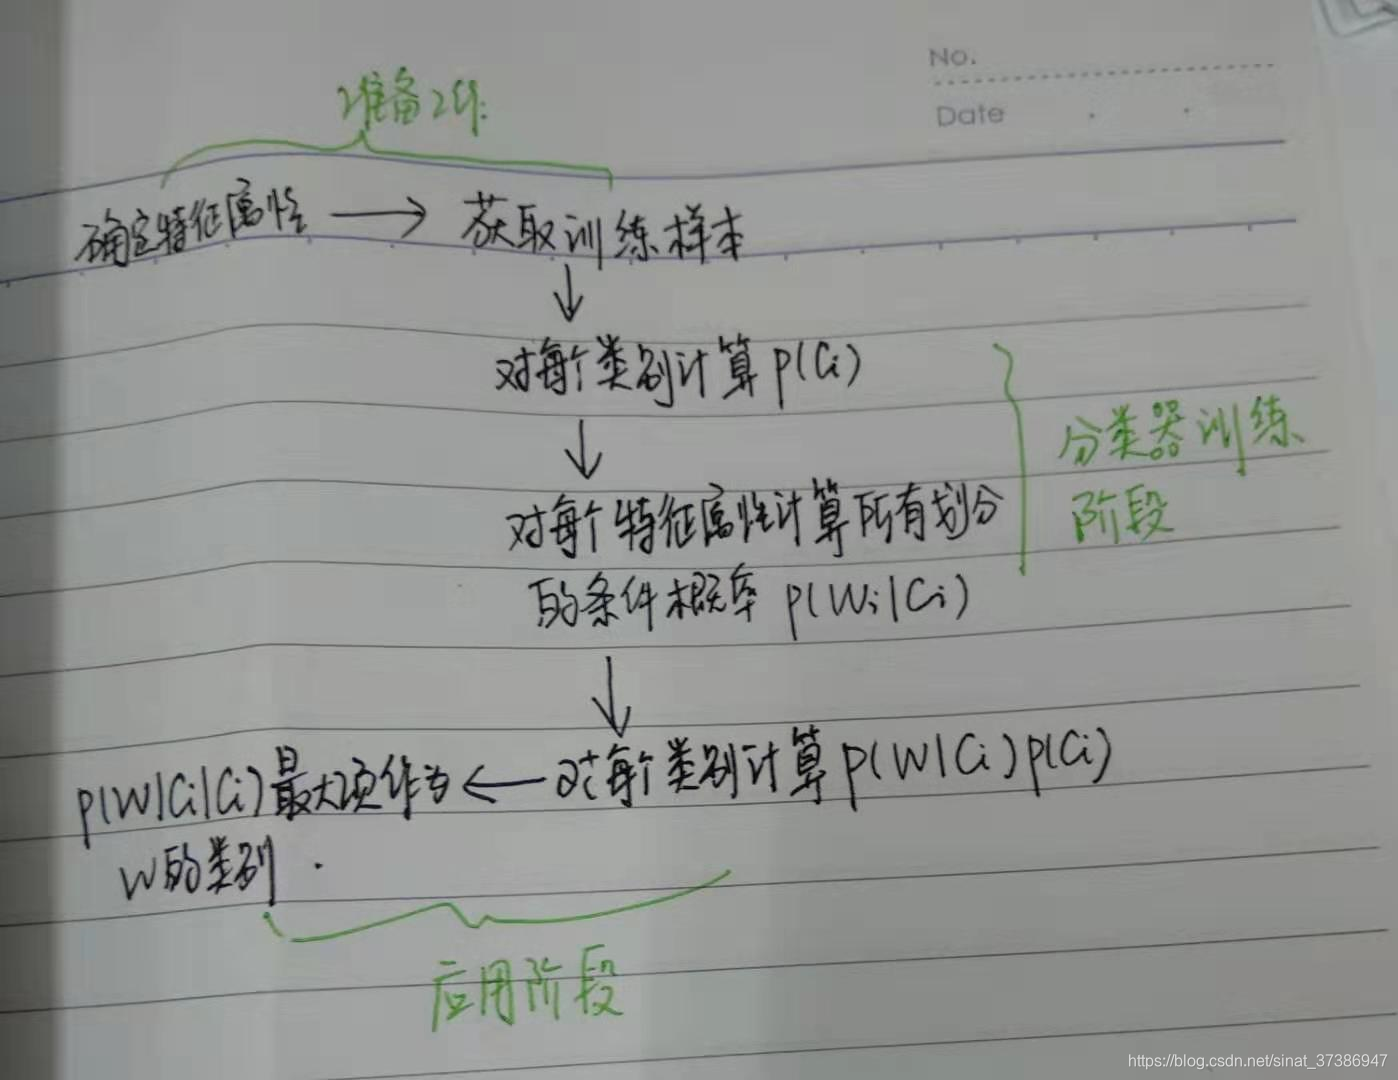 No.
Date
准备工作
确定特征属性 → 获取训练样本
↓
对每个类别计算 P(Ci)
↓
分类器训练
阶段
对每个特征属性计算所有划分
的条件概率 P(Wi|Ci)
↓
P(W|Ci|Ci)最大项作为 ← 对每个类别计算 P(W|Ci)P(Ci)
W的类别.
应用阶段
https://blog.csdn.net/sinat_37386947